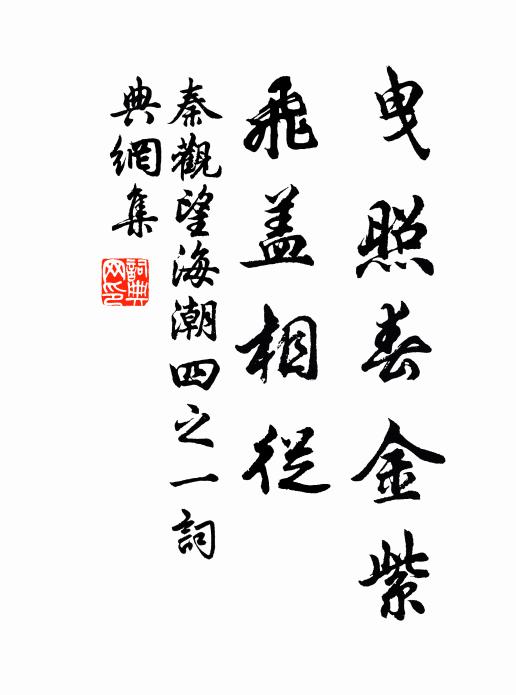 曳照春金紫
飛盖相從
秦觀望海潮四之一詞
典網集
詞典网印